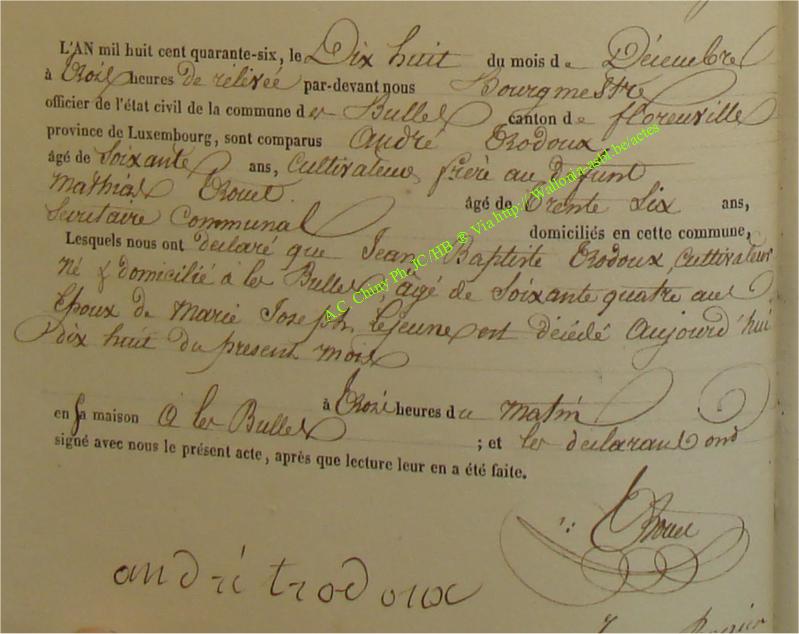 L'AN mil huit cent quarante-six, le Dix huit du mois de Décembre
à Trois heures de rélévée par-devant nous Bourgmestre
officier de l'état civil de la commune des Bulles canton de florenville
province de Luxembourg, sont comparus André Trodoux
âgé de Soixante ans, Cultivateur, frère au defunt
Mathias Trouet âgé de Trente Six ans,
Secrétaire Communal domiciliés en cette commune,
Lesquels nous ont declaré que Jean Baptiste Trodoux, Cultivateur
né & domicilié à les Bulles, âgé de Soixante quatre ans
Epoux de Marie Joseph Lejeune est décédé Aujourd'hui
dix huit du present mois
à Trois heures du matin
en sa maison à les Bulles ; et les déclarans ont
signé avec nous le présent acte, après que lecture leur en a été faite.
Trouet
andré trodoux
A.C. Chiny Ph.JC/HB ® Via http://Wallonia-asbl.be/actes